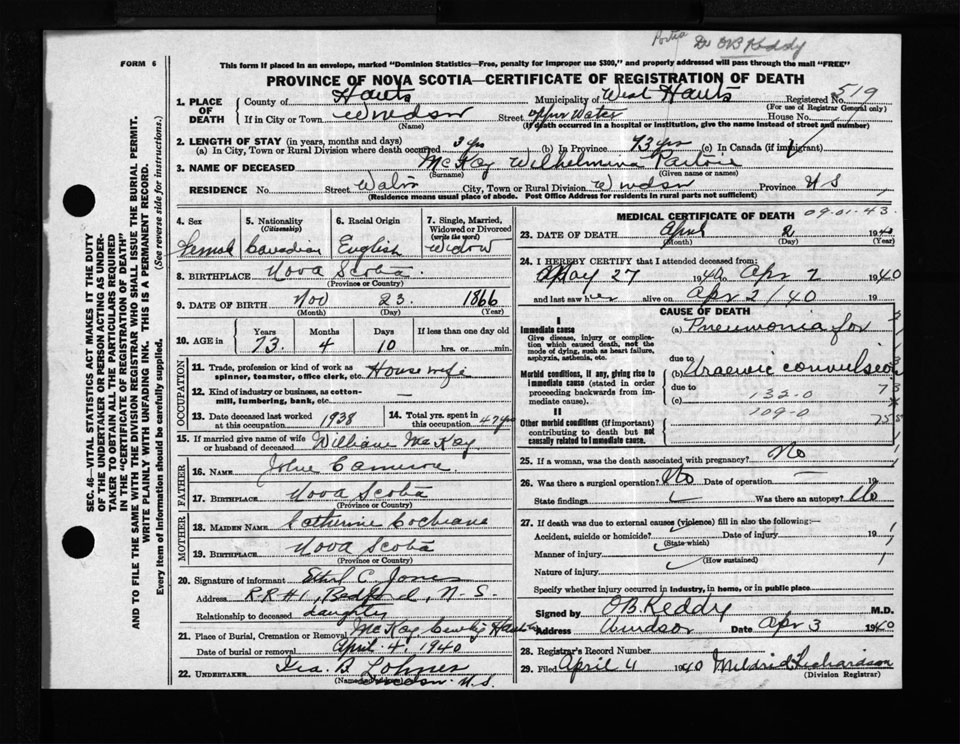 Dr OB Keddy
FORM 6
This form if placed in an envelope, marked "Dominion Statistics—Free, penalty for improper use $300," and properly addressed will pass through the mail "FREE"
PROVINCE OF NOVA SCOTIA—CERTIFICATE OF REGISTRATION OF DEATH
SEC. 46—VITAL STATISTICS ACT MAKES IT THE DUTY
OF THE UNDERTAKER OR PERSON ACTING AS UNDER-
TAKER TO OBTAIN ALL THE PARTICULARS REQUIRED
IN THE "CERTIFICATE OF REGISTRATION OF DEATH"
AND TO FILE THE SAME WITH THE DIVISION REGISTRAR WHO SHALL ISSUE THE BURIAL PERMIT.
WRITE PLAINLY WITH UNFADING INK. THIS IS A PERMANENT RECORD.
Every item of Information should be carefully supplied. (See reverse side for instructions.)
1. PLACE OF DEATH County of Hants Municipality of West Hants Registered No. 519
(For use of Registrar General only)
If in City or Town Windsor Street Upper Water House No.
(Name) (If death occurred in a hospital or institution, give the name instead of street and number)
2. LENGTH OF STAY (in years, months and days)
(a) In City, Town or Rural Division where death occurred 3 yrs (b) In Province 73 yrs (c) In Canada (if immigrant)
3. NAME OF DECEASED McKay Wilhelmina
(Surname) (Given name or names)
RESIDENCE No. Street Water City, Town or Rural Division Windsor Province N S
(Residence means usual place of abode. Post Office Address for residents in rural parts not sufficient)
4. Sex Female
5. Nationality (Citizenship) Canadian
6. Racial Origin English
7. Single, Married, Widowed or Divorced (write the word) Widow
8. BIRTHPLACE Nova Scotia
(Province or Country)
9. DATE OF BIRTH Nov 23 1866
(Month) (Day) (Year)
10. AGE in Years 73 Months 4 Days 10 If less than one day old hrs. or min.
OCCUPATION
11. Trade, profession or kind of work as spinner, teamster, office clerk, etc. Housewife
12. Kind of industry or business, as cotton-mill, lumbering, bank, etc. —
13. Date deceased last worked at this occupation 1938
14. Total yrs. spent in this occupation 47 yrs
15. If married give name of wife or husband of deceased William McKay
FATHER
16. NAME John Cameron
17. BIRTHPLACE Nova Scotia
(Province or Country)
MOTHER
18. MAIDEN NAME Catherine Cochrane
19. BIRTHPLACE Nova Scotia
(Province or Country)
20. Signature of informant Ethel C. Jones
Address R R #1, Bedford, N. S.
Relationship to deceased daughter
21. Place of Burial, Cremation or Removal McKay Hants
Date of burial or removal April 4, 1940
22. UNDERTAKER Ira B. Lohnes
Windsor N.S.
MEDICAL CERTIFICATE OF DEATH 09-01-43
23. DATE OF DEATH April 2 1940
(Month) (Day) (Year)
24. I HEREBY CERTIFY that I attended deceased from:
May 27 1940 to Apr 2 1940
and last saw her alive on Apr 2/40 19
CAUSE OF DEATH
I
Immediate cause
Give disease, injury or complication which caused death, not the mode of dying, such as heart failure, asphyxia, asthenia, etc.
(a) Pneumonia
due to
Morbid conditions, if any, giving rise to immediate cause (stated in order proceeding backwards from immediate cause).
(b) Uraemic convulsion
due to 132-0
(c) 109-0
II
Other morbid conditions (if important) contributing to death but not causally related to immediate cause.
25. If a woman, was the death associated with pregnancy? No
26. Was there a surgical operation? No Date of operation — 19
State findings Was there an autopsy? No
27. If death was due to external causes (violence) fill in also the following:—
Accident, suicide or homicide? Date of injury 19
(State which)
Manner of injury
(How sustained)
Nature of injury
Specify whether injury occurred in industry, in home, or in public place
Signed by OB Keddy M.D.
Address Windsor Date Apr 3 1940
28. Registrar's Record Number
29. Filed April 4 1940 Mildred Richardson
(Division Registrar)